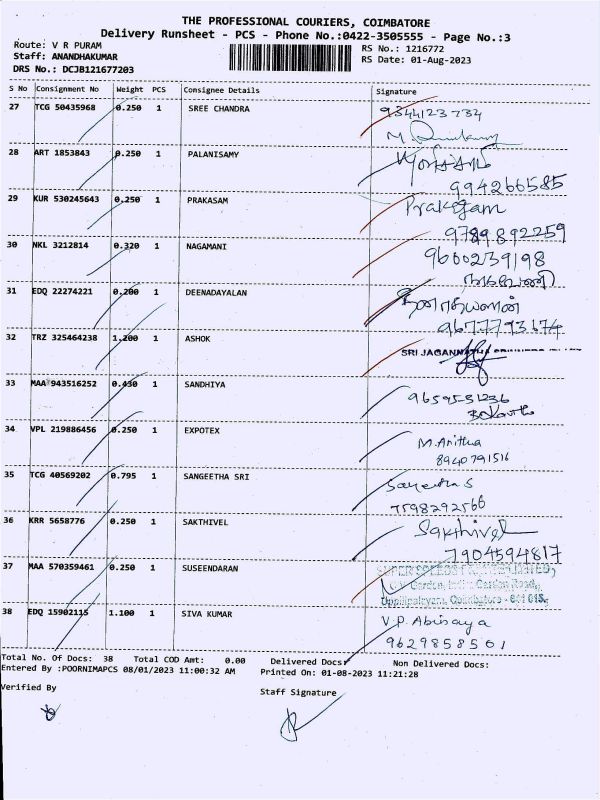 THE PROFESSIONAL COURIERS, COIMBATORE
Delivery Runsheet - PCS - Phone No.:0422-3505555 - Page No.:3
Route: V R PURAM
RS No.: 1216772
Staff: ANANDHAKUMAR
RS Date: 01-Aug-2023
DRS No.: DCJB121677203
S No Consignment No Weight PCS Consignee Details Signature
27 TCG 50435968 0.250 1 SREE CHANDRA 9344123734
28 ART 1853843 0.250 1 PALANISAMY
994266585
29 KUR 530245643 0.250 1 PRAKASAM Prakasam
9789892259
30 NKL 3212814 0.320 1 NAGAMANI 9600239198
நாகமணி
31 EDQ 22274221 0.200 1 DEENADAYALAN தீனதயாளன்
9677793674
32 TRZ 325464238 1.200 1 ASHOK SRI JAGANNATHA
33 MAA 943516252 0.430 1 SANDHIYA 9659531236
34 VPL 219886456 0.250 1 EXPOTEX M.Anitha
8940791516
35 TCG 40569202 0.795 1 SANGEETHA SRI Sangeetha S
7598292566
36 KRR 5658776 0.250 1 SAKTHIVEL Sakthivel
7904594817
37 MAA 570359461 0.250 1 SUSEENDARAN
Uppilipalayam, Coimbatore - 641 015.
38 EDQ 15902115 1.100 1 SIVA KUMAR V.P. Abinaya
9629858501
Total No. Of Docs: 38 Total COD Amt: 0.00 Delivered Docs: Non Delivered Docs:
Entered By :POORNIMAPCS 08/01/2023 11:00:32 AM Printed On: 01-08-2023 11:21:28
Verified By
Staff Signature